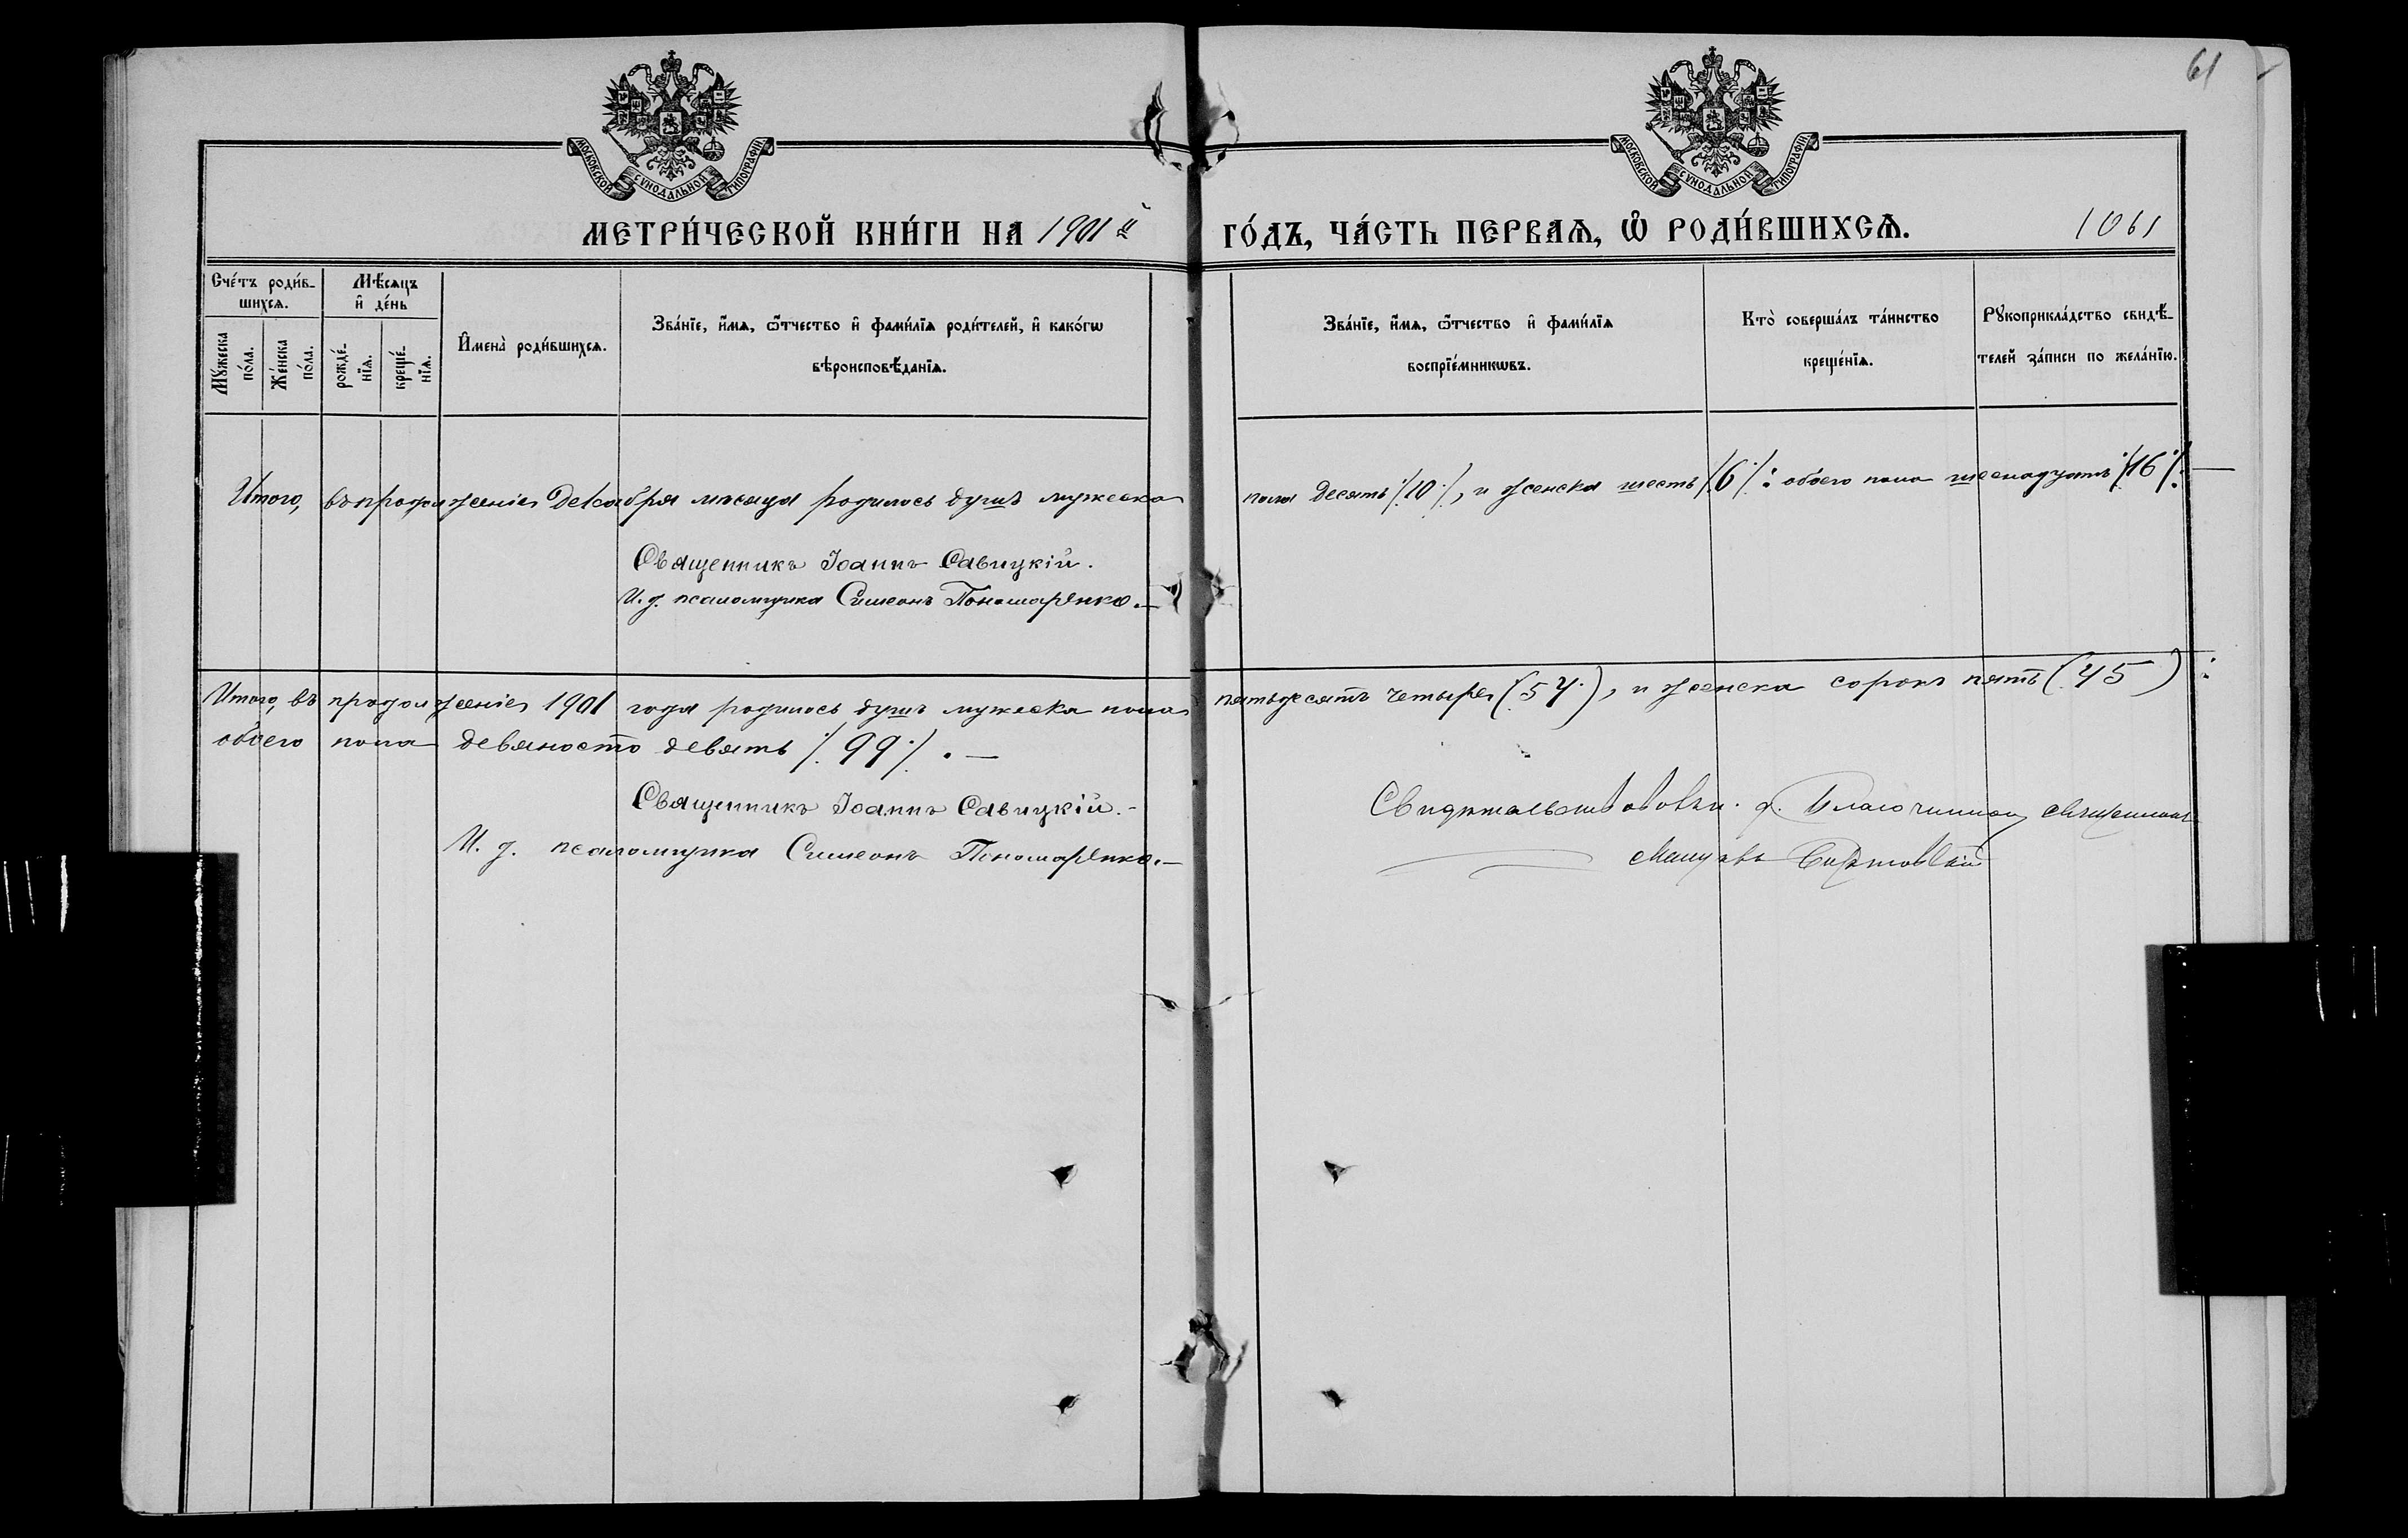 61
МОСКОВСКОЙ СѴНОДАЛЬНОЙ ТИПОГРАФІИ.
МОСКОВСКОЙ СѴНОДАЛЬНОЙ ТИПОГРАФІИ.
МЕТРИ́ЧЕСКОЙ КНИ́ГИ НА 1901й ГО́ДЪ, ЧА́СТЬ ПЕРВАѦ, Ѡ҆ РОДИ́ВШИХСѦ. 1061
Сче́тъ роди́в-
шихсѧ.
Мꙋ́жеска
по́ла.
Же́нска
по́ла.
Мѣ́сѧцъ
и҆ де́нь
рожде́-
нїѧ.
креще́-
нїѧ.
И҆мена̀ роди́вшихсѧ.
Зва́нїе, и҆́мѧ, ѻ҆́тчество и҆ фами́лїѧ роди́телей, и҆ како́гѡ
вѣроисповѣ́данїѧ.
Зва́нїе, и҆́мѧ, ѻ҆́тчество и҆ фами́лїѧ
воспрїе́мникѡвъ.
Кто̀ соверша́лъ та́инство
креще́нїѧ.
Рꙋкоприкла́дство свидѣ́-
телей за́писи по жела́нїю.
Итого, въ продолженіе Декабря мѣсяца родилось душъ мужеска пола десять /.10./, и женска шесть /.6./: обоего пола шеснадцать /.16./. —
Священникъ Іоаннъ Савицкій.
И. д. псаломщика Симеонъ Пономаренко. —
Итого, въ продолженіе 1901 года родилось душъ мужеска пола пятьдесятъ четыре (54.), и женска сорокъ пять (45):
обоего пола девяносто девять /. 99./. —
Священникъ Іоаннъ Савицкій. -
И. д. псаломщика Симеонъ Пономаренко. —
Свидѣтельствовалъ. Благочинный священникъ